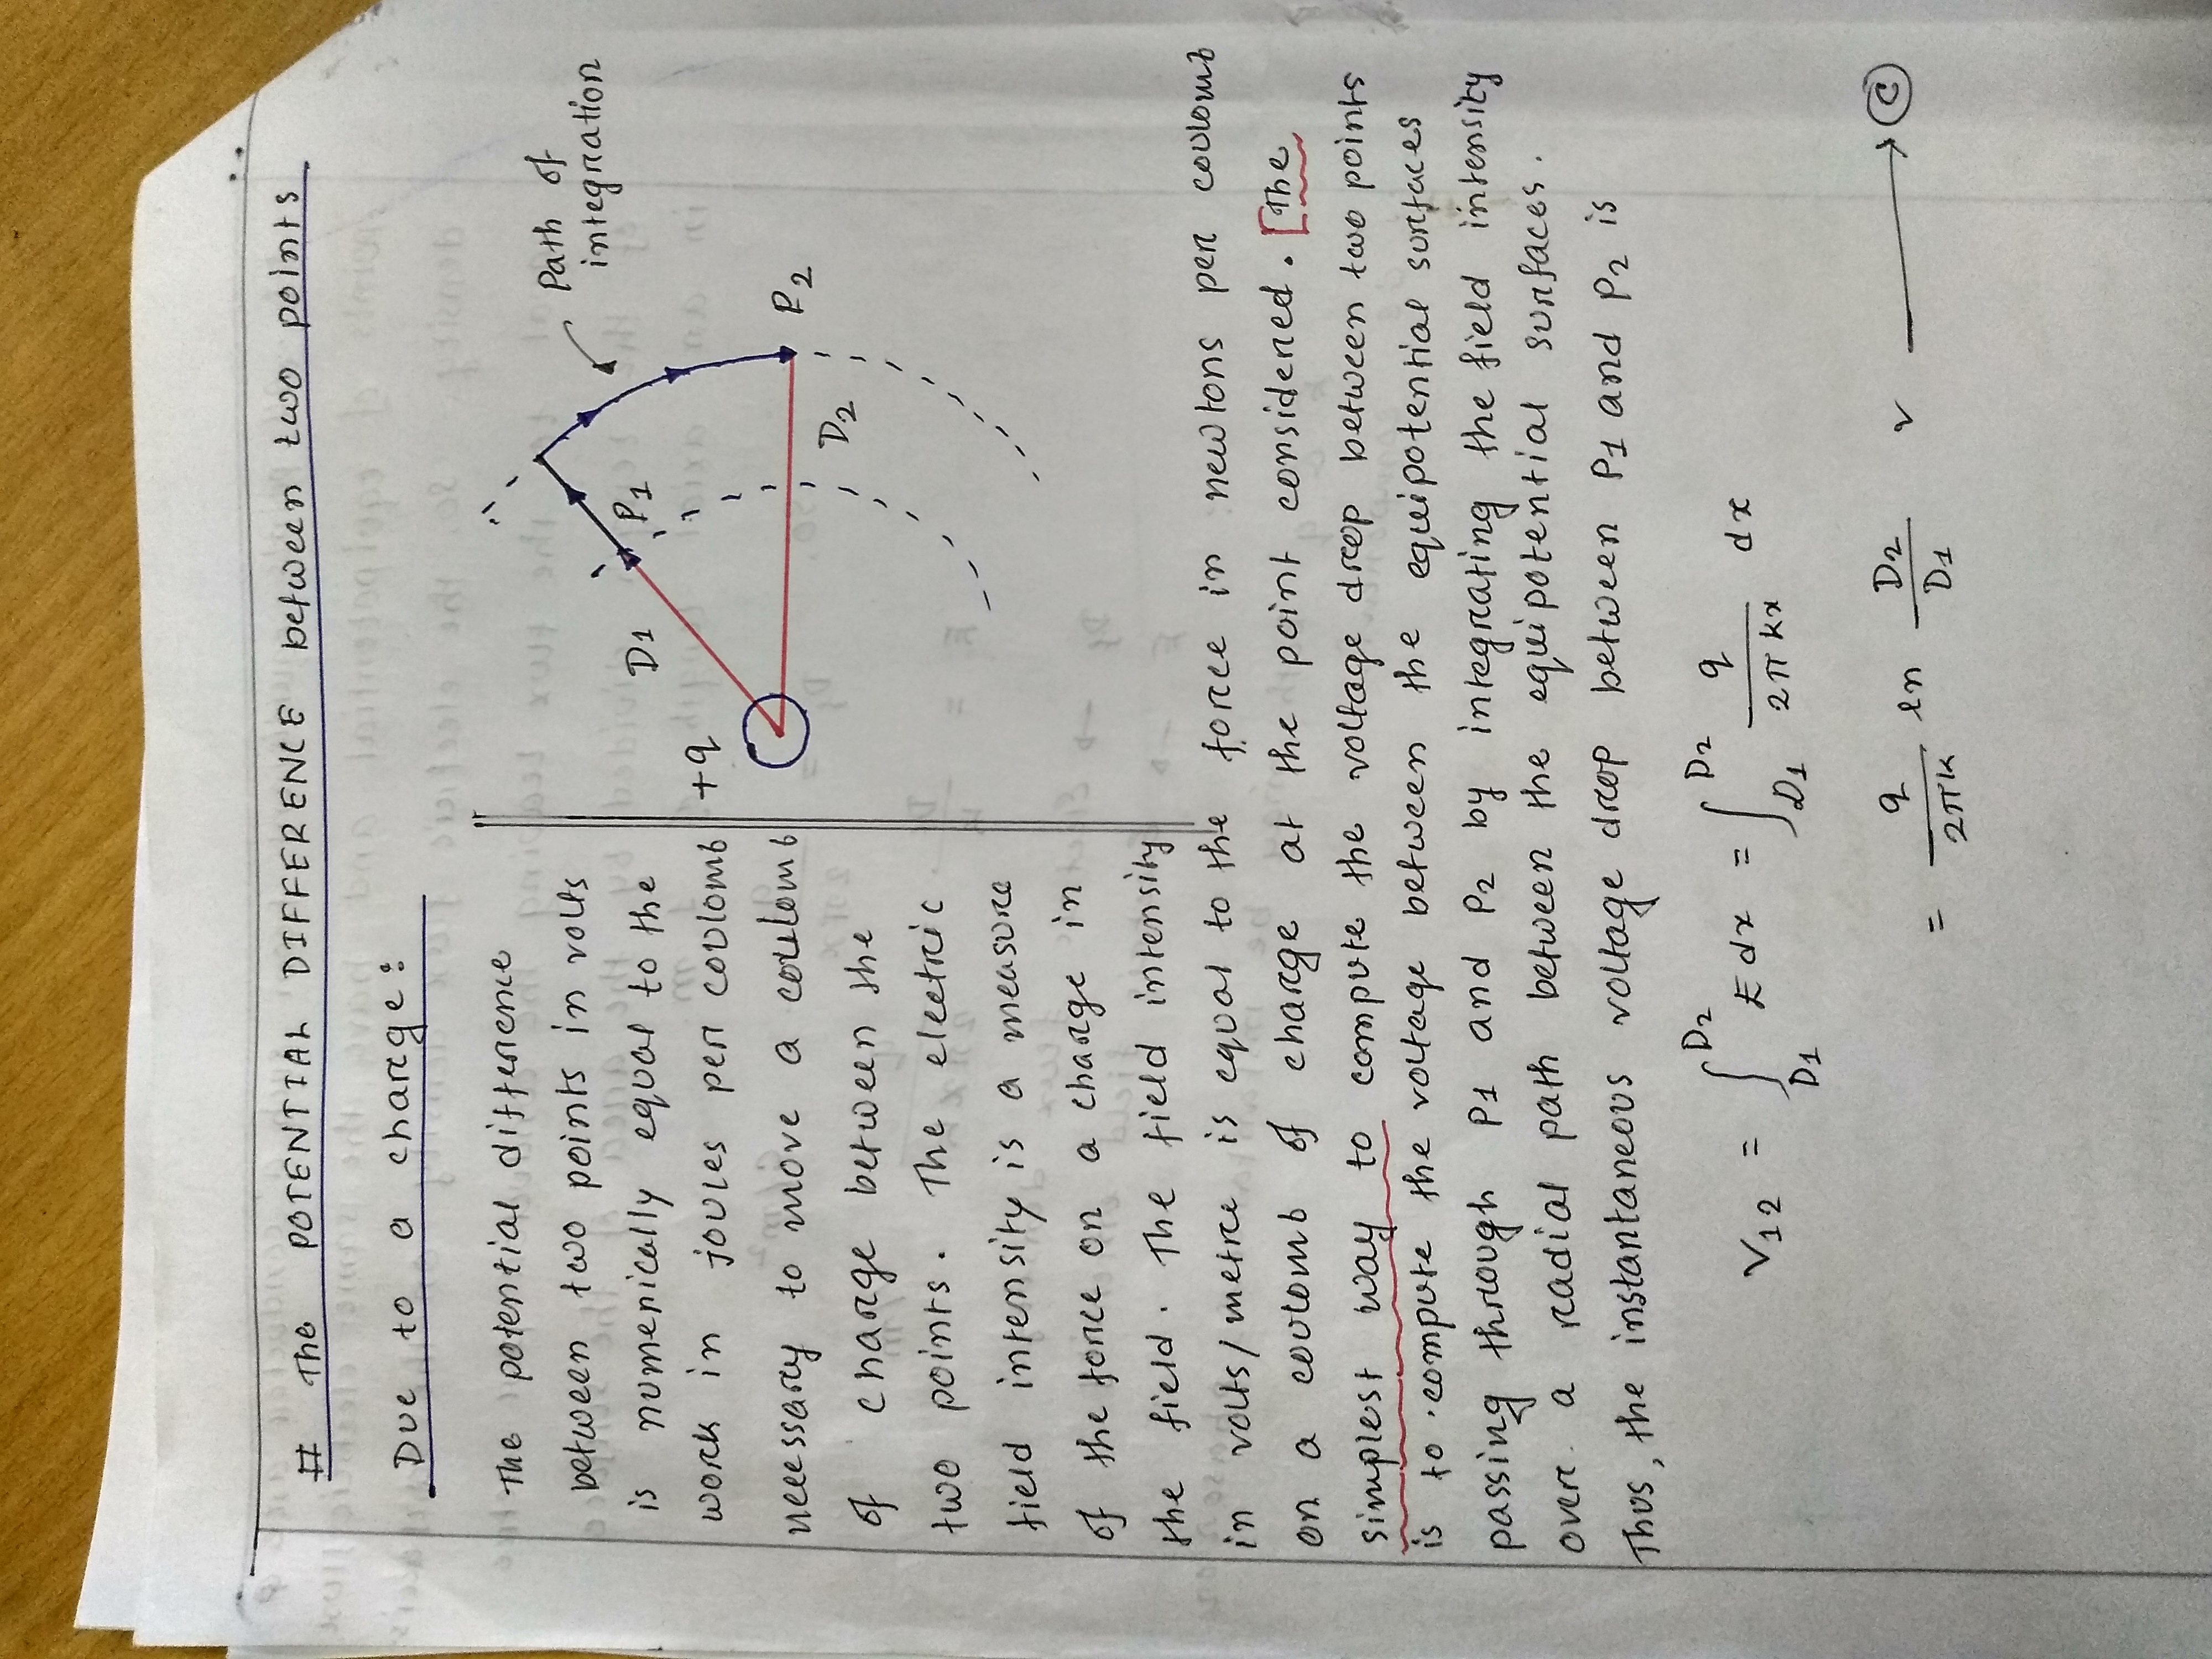 # The POTENTIAL DIFFERENCE between two points
Due to a charge:
The potential difference
between two points in volts
is numerically equal to the
work in joules per coulomb
necessary to move a coulomb
of charge between the
two points. The electric
field intensity is a measure
of the force on a charge in
the field. The field intensity
in volts/metre is equal to the force in newtons per coulomb
on a coulomb of charge at the point considered. [The
simplest way to compute the voltage drop between two points
is to compute the voltage between the equipotential surfaces
passing through P1 and P2 by integrating the field intensity
over a radial path between the equipotential surfaces.
Thus, the instantaneous voltage drop between P1 and P2 is
V12 = ∫_D1^D2 E dx = ∫_D1^D2 q/2πkx dx
= q/2πk ln D2/D1 v → (C)
+q
D1
P1
D2
P2
Path of
integration